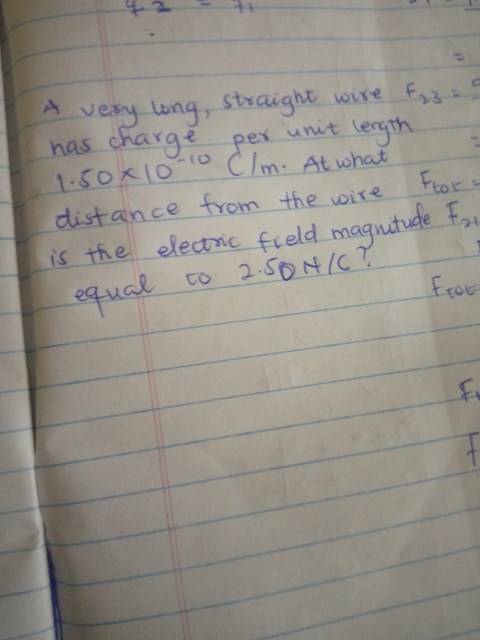 A very long, straight wire F23 =
has charge per unit length
1.50×10^-10 C/m. At what
distance from the wire Ftot =
is the electric field magnitude F21
equal to 2.50 N/C?
Ftot